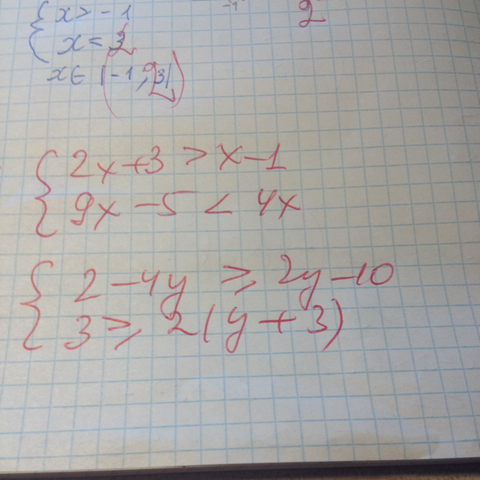 { x > -1
x = 2
x ∈ (-1, 2)
2
{ 2x+3 > x-1
9x-5 < 4x
{ 2-4y ≥ 2y-10
3 ≥ 2(y+3)